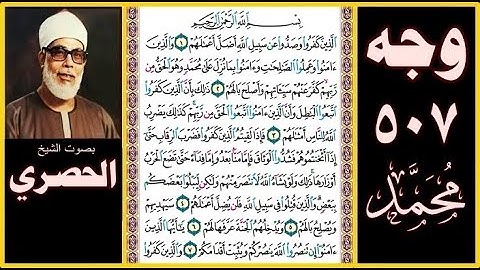 وجه
٥٠٧
مُحَمَّد
بِسْمِ ٱللَّهِ ٱلرَّحْمَٰنِ ٱلرَّحِيمِ
ٱلَّذِينَ كَفَرُوا۟ وَصَدُّوا۟ عَن سَبِيلِ ٱللَّهِ أَضَلَّ أَعْمَٰلَهُمْ ١ وَٱلَّذِينَ
ءَامَنُوا۟ وَعَمِلُوا۟ ٱلصَّٰلِحَٰتِ وَءَامَنُوا۟ بِمَا نُزِّلَ عَلَىٰ مُحَمَّدٍ وَهُوَ ٱلْحَقُّ مِن
رَّبِّهِمْ كَفَّرَ عَنْهُمْ سَيِّـَٔاتِهِمْ وَأَصْلَحَ بَالَهُمْ ٢ ذَٰلِكَ بِأَنَّ ٱلَّذِينَ كَفَرُوا۟
ٱتَّبَعُوا۟ ٱلْبَٰطِلَ وَأَنَّ ٱلَّذِينَ ءَامَنُوا۟ ٱتَّبَعُوا۟ ٱلْحَقَّ مِن رَّبِّهِمْ كَذَٰلِكَ يَضْرِبُ
ٱللَّهُ لِلنَّاسِ أَمْثَٰلَهُمْ ٣ فَإِذَا لَقِيتُمُ ٱلَّذِينَ كَفَرُوا۟ فَضَرْبَ ٱلرِّقَابِ حَتَّىٰٓ
إِذَآ أَثْخَنتُمُوهُمْ فَشُدُّوا۟ ٱلْوَثَاقَ فَإِمَّا مَنًّۢا بَعْدُ وَإِمَّا فِدَآءً حَتَّىٰ تَضَعَ ٱلْحَرْبُ
أَوْزَارَهَا ذَٰلِكَ وَلَوْ يَشَآءُ ٱللَّهُ لَٱنتَصَرَ مِنْهُمْ وَلَٰكِن لِّيَبْلُوَا۟ بَعْضَكُم
بِبَعْضٍ وَٱلَّذِينَ قُتِلُوا۟ فِى سَبِيلِ ٱللَّهِ فَلَن يُضِلَّ أَعْمَٰلَهُمْ ٤ سَيَهْدِيهِمْ
وَيُصْلِحُ بَالَهُمْ ٥ وَيُدْخِلُهُمُ ٱلْجَنَّةَ عَرَّفَهَا لَهُمْ ٦ يَٰٓأَيُّهَا ٱلَّذِينَ
ءَامَنُوٓا۟ إِن تَنصُرُوا۟ ٱللَّهَ يَنصُرْكُمْ وَيُثَبِّتْ أَقْدَامَكُمْ ٧ وَٱلَّذِينَ كَفَرُوا۟
بصوت الشيخ
الحصري